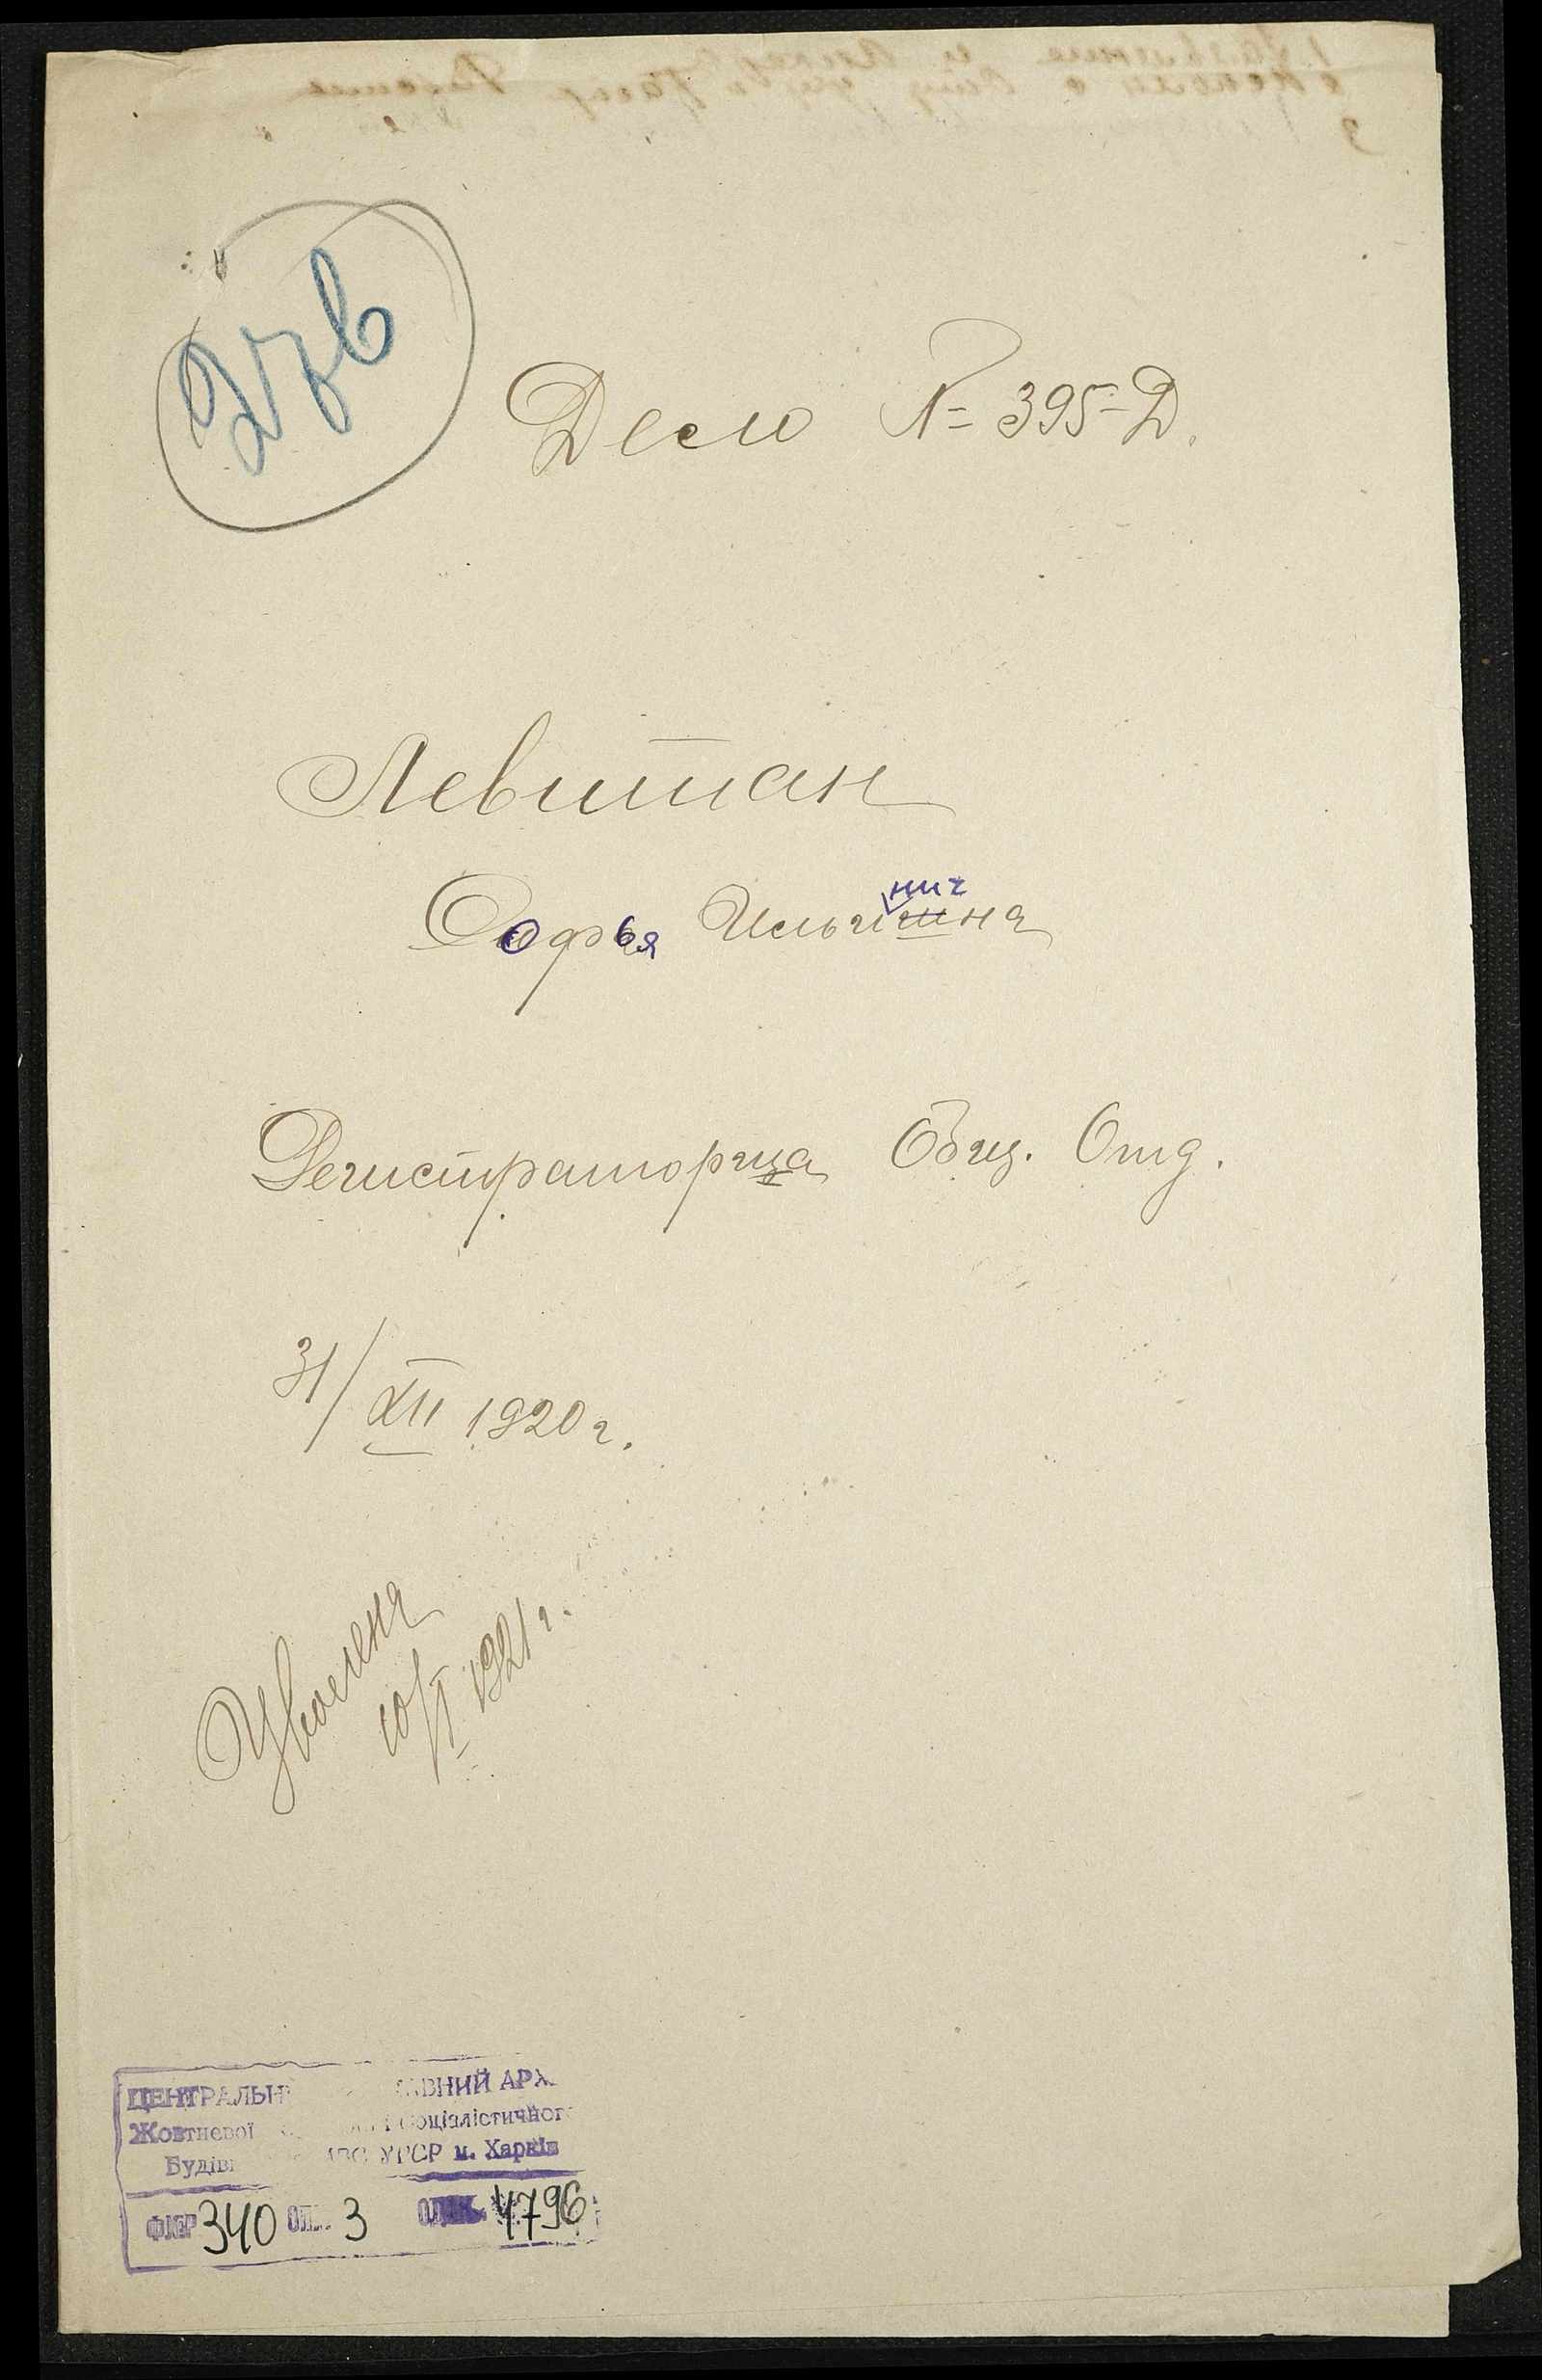 Дело № 395-Д.
Левитан
Софья Ильинична
Регистраторша Общ. Отд.
31/XII 1920 г.
Уволена
10/I 1921 г.
ЦЕНТРАЛЬН ВНИЙ АРХ
Жовтневої і соціалістичног
Будівн УРСР м. Харків
ФОНД 340 ОП. 3 ОД. ЗБ. 4796